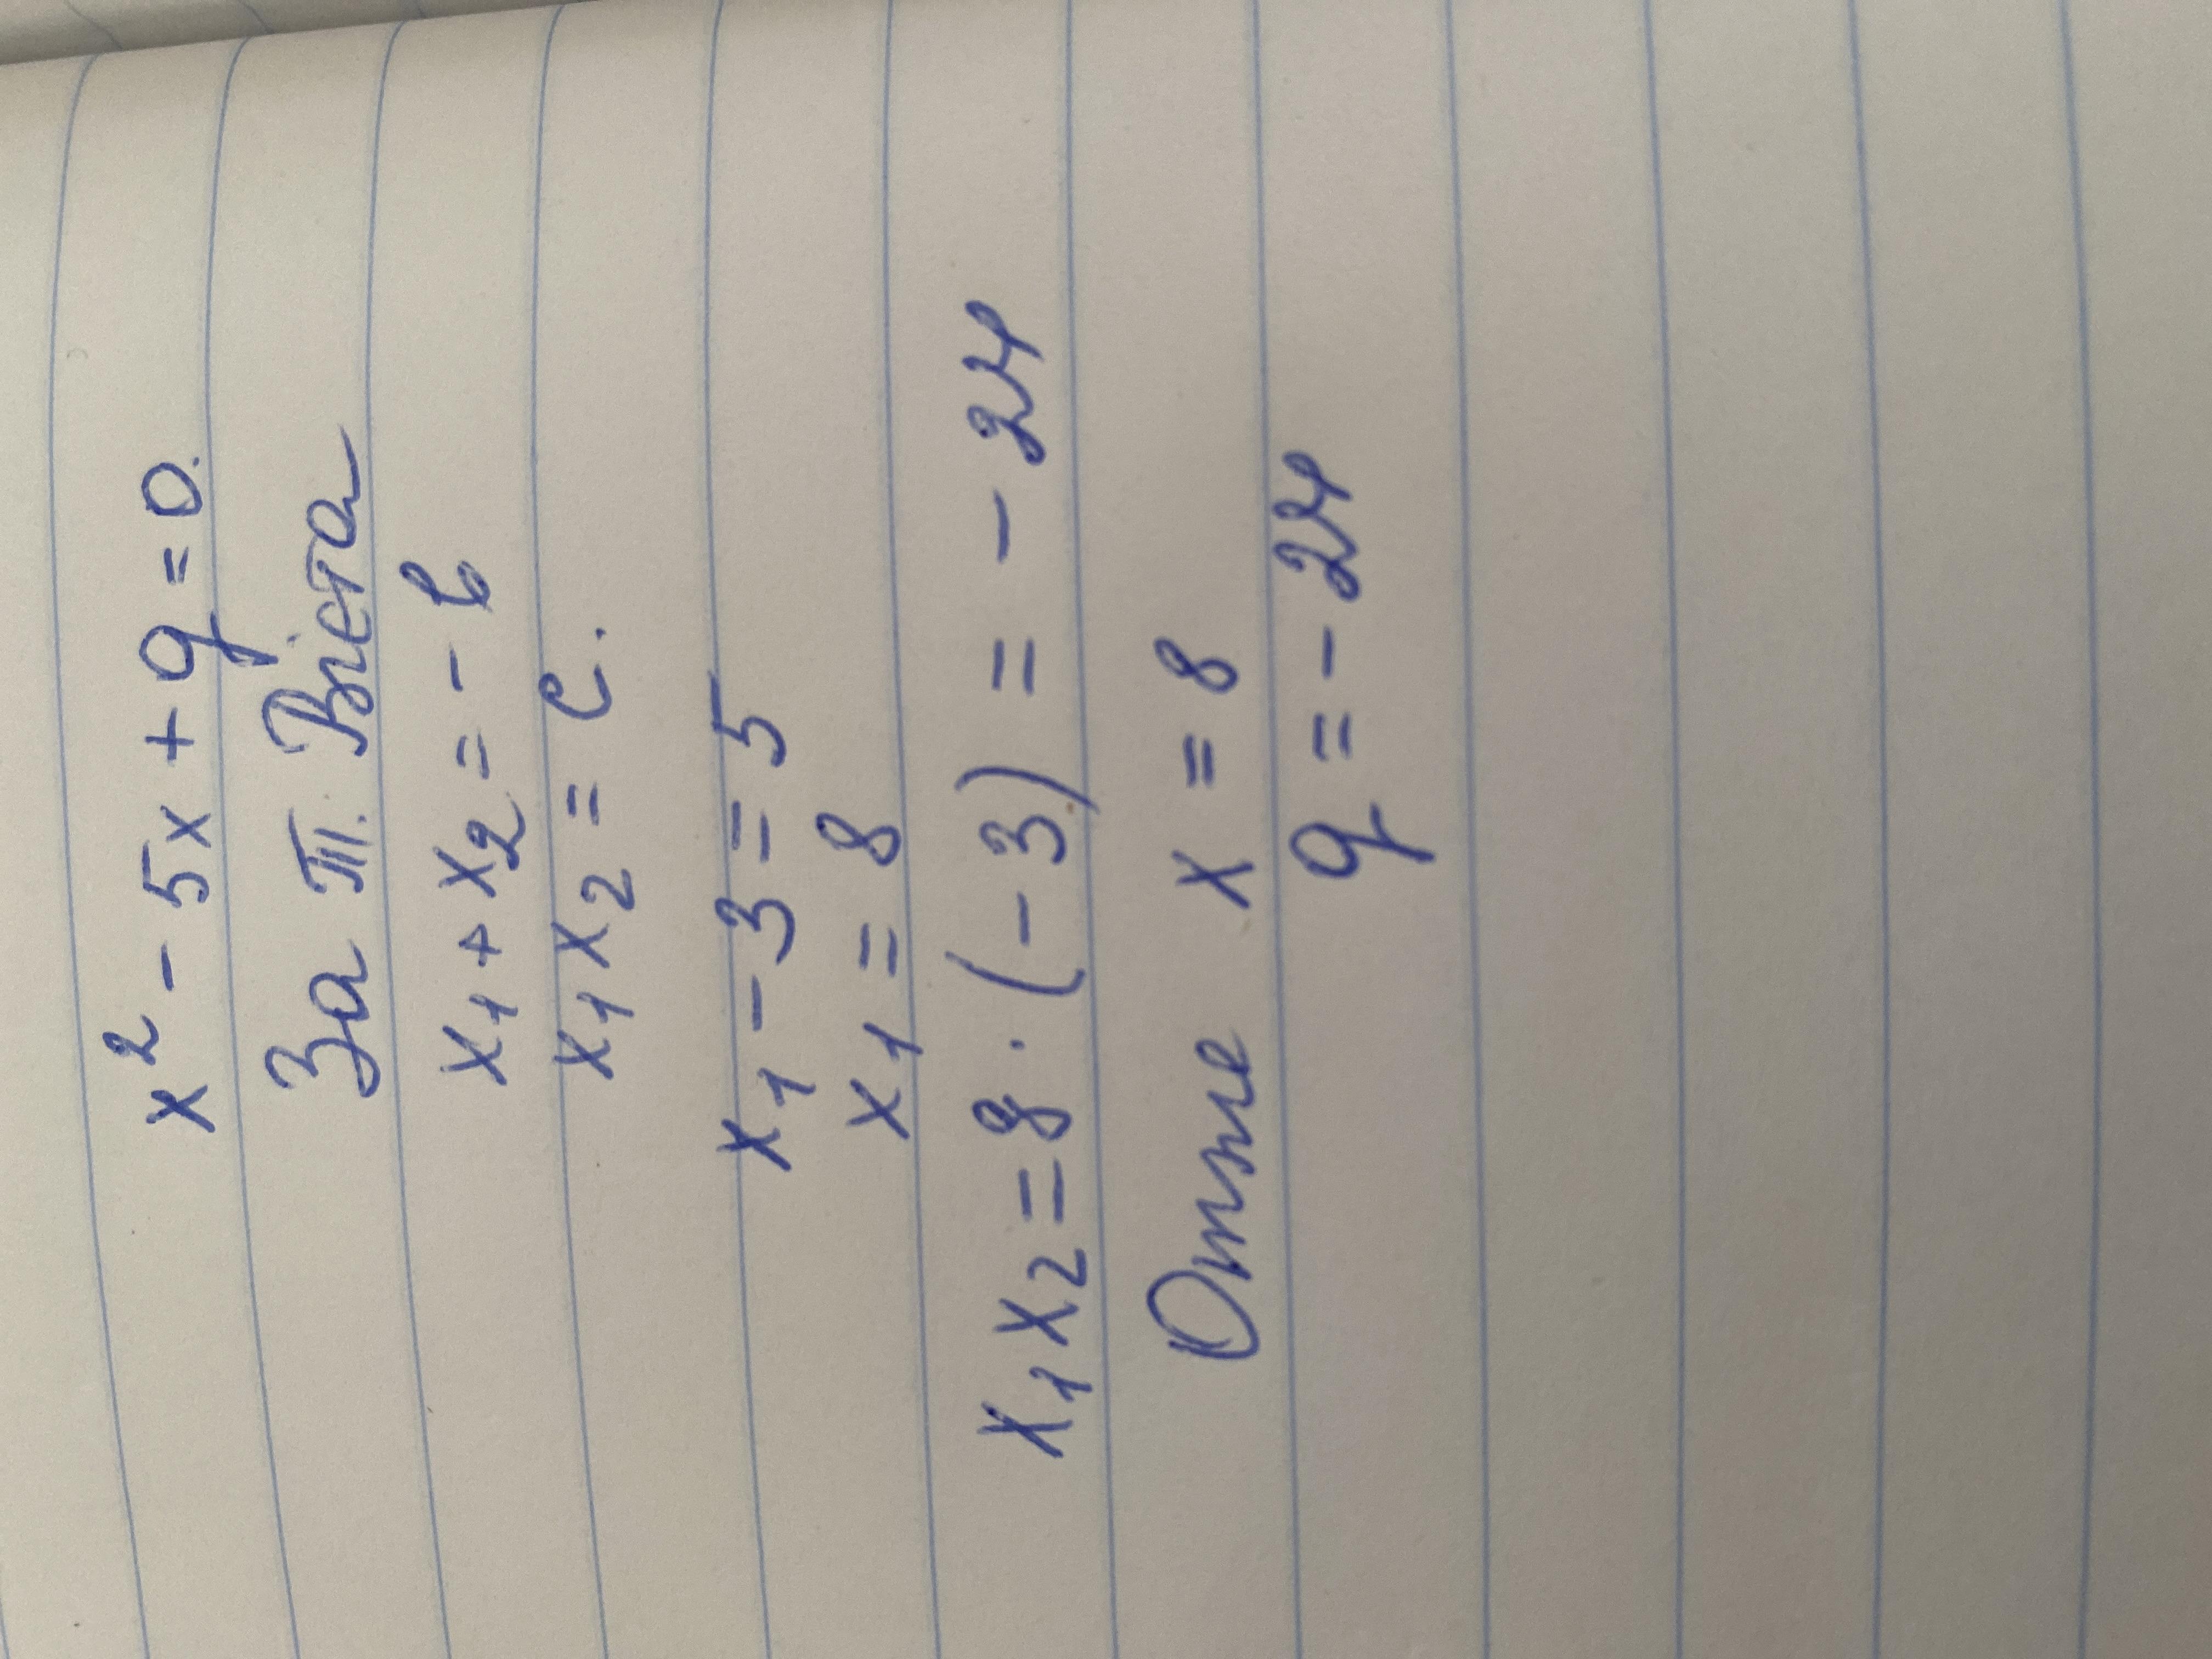 x² - 5x + q = 0.
За т. Вієта
x₁ + x₂ = - b
x₁x₂ = c.
x₁ - 3 = 5
x₁ = 8
x₁x₂ = 8 · (-3) = - 24
Отже x = 8
q = - 24